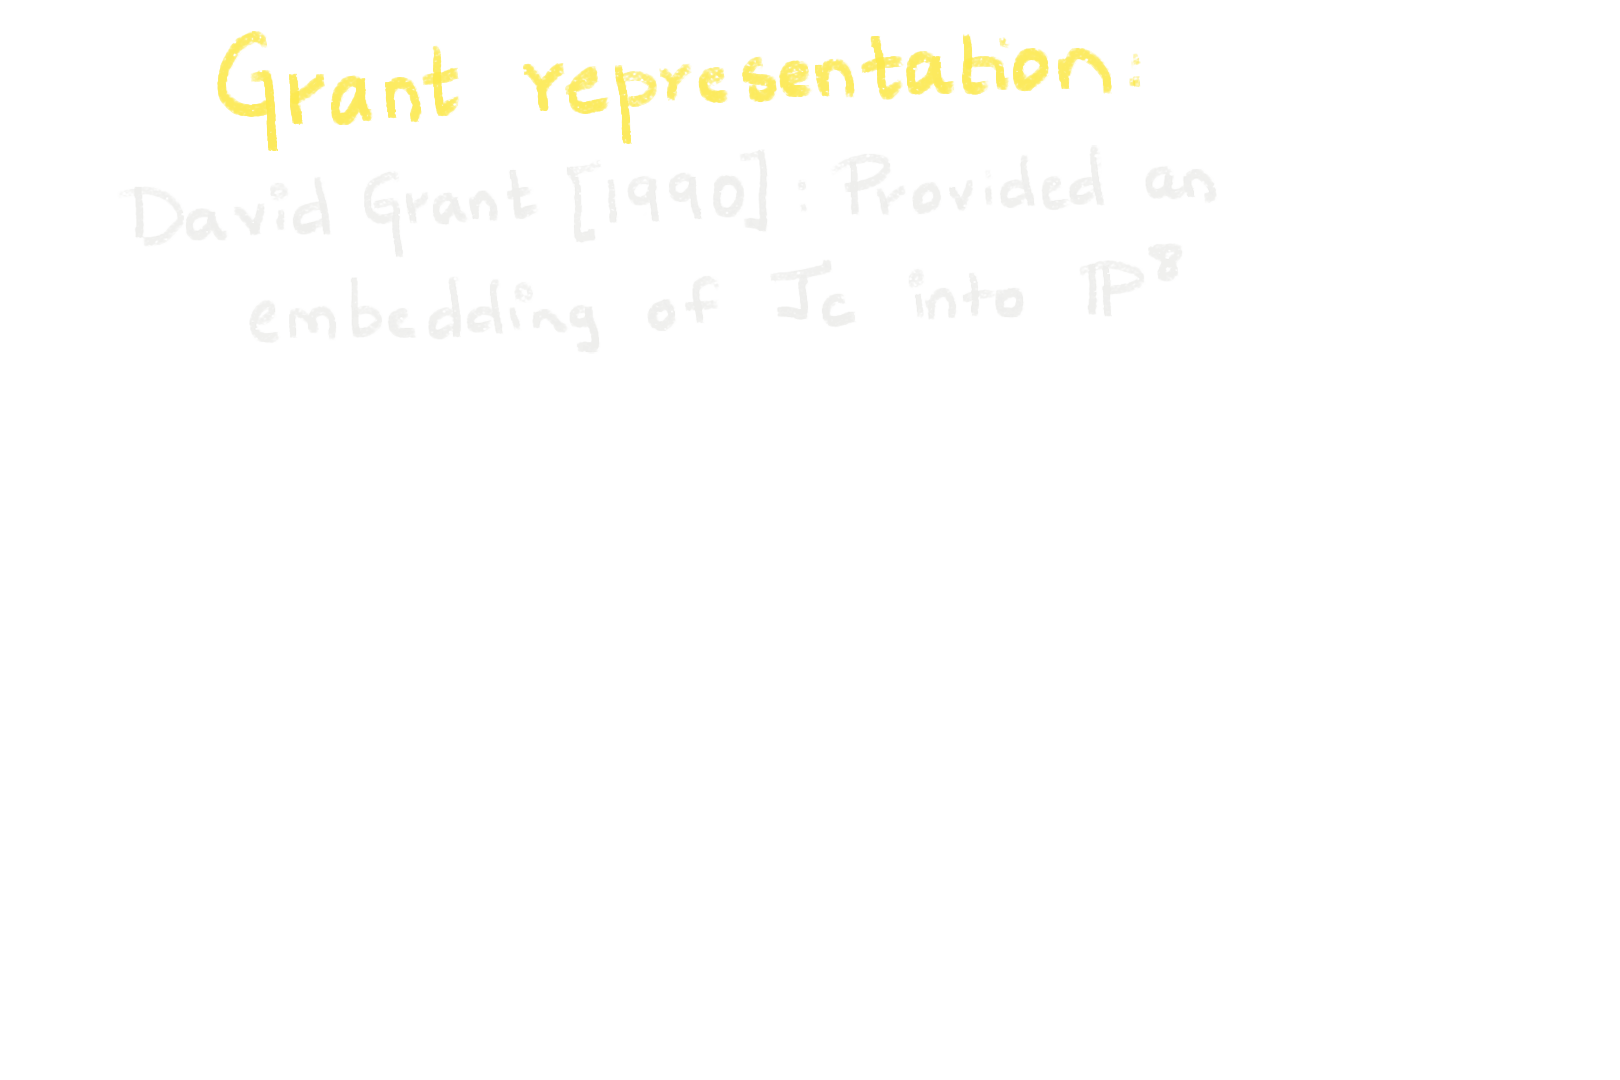 Grant representation:
David Grant [1990]: Provided an
embedding of Jc into ℙ⁸